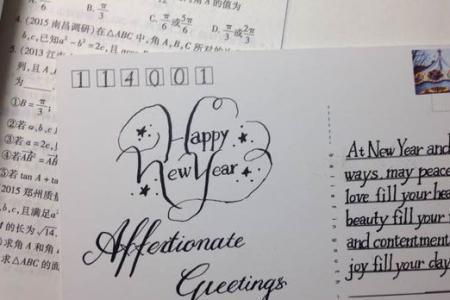 6 B. π/3 C. π/6或5π/6 D. π/3或2π/3
4. (2015 南昌调研) 在△ABC中, 角A, B, C 所对的
b, c, 已知a²-b²=2c, 且
5. (2013 江
列, 且A,
为
①B=π/3;
②若a, b, c
③若a=2c,
④若
⑤若 tan A+ta
2015 郑州质
b, c, 且满足
的长为√14.
求角A和角
求△ABC的面
114001
Happy
New Year
Affectionate
Greetings
At New Year and
ways, may peace
love fill your hea
beauty fill your
and contentment
joy fill your day